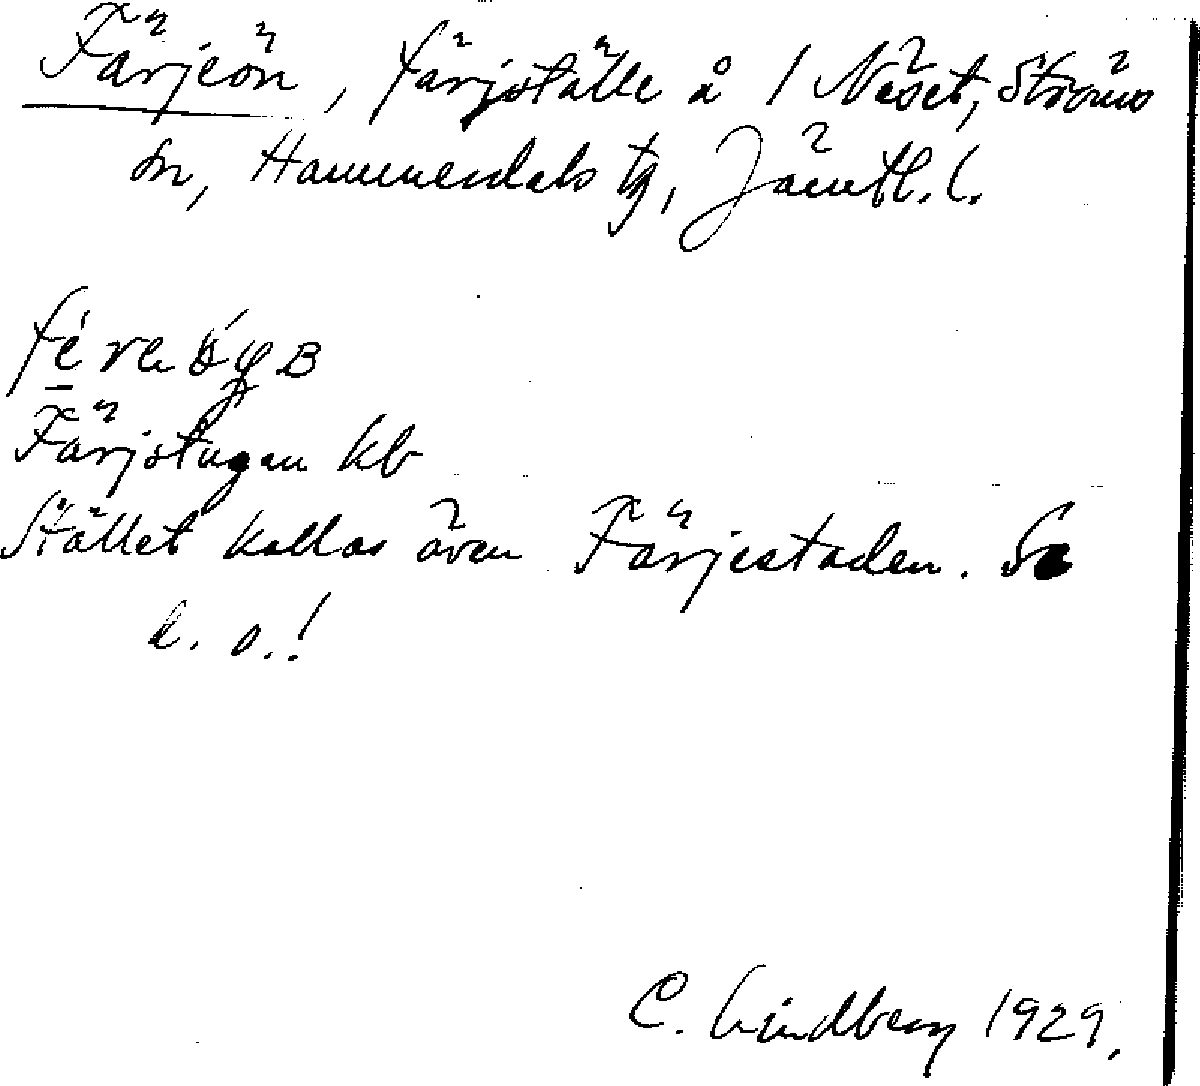 Färjeön, färjställe å 1 Näset, Ströms
sn, Hammerdals tg, Jämtl. l.
Färjstugan kb
Stället kallas även Färjestaden. Se
d. o.!
C. Lindberg 1929.